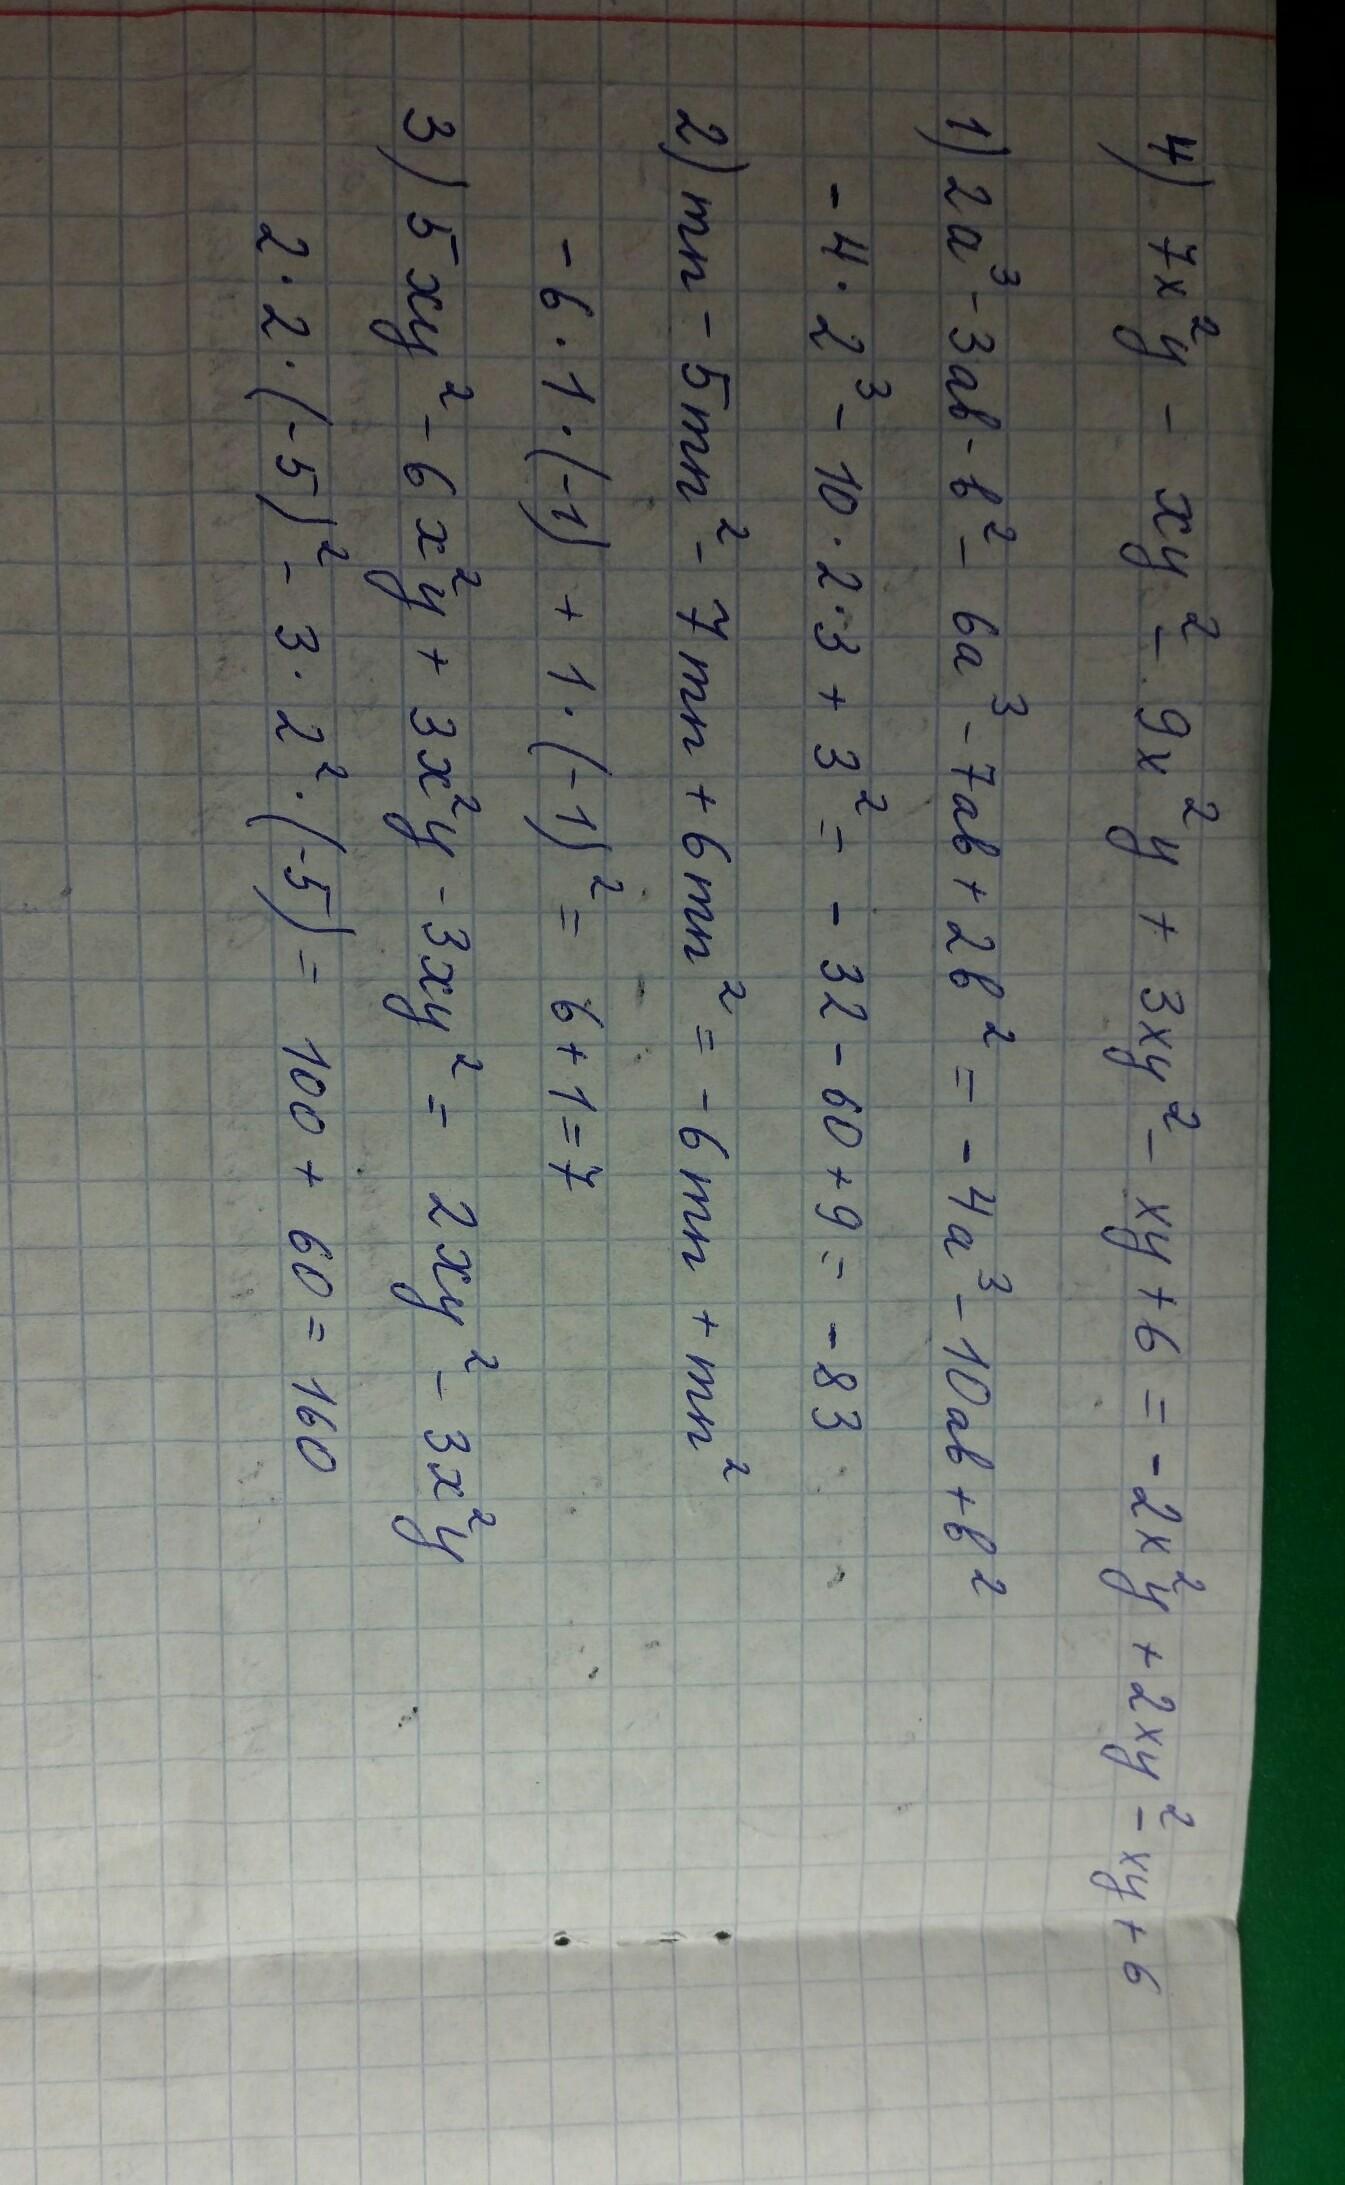 4) 7x²y - xy² - 9x²y + 3xy² - xy + 6 = -2x²y + 2xy² - xy + 6
1) 2a³ - 3ab - b² - 6a³ - 7ab + 2b² = -4a³ - 10ab + b²
-4·2³ - 10·2·3 + 3² = -32 - 60 + 9 = -83
2) mn - 5mn² - 7mn + 6mn² = -6mn + mn²
-6·1·(-1) + 1·(-1)² = 6 + 1 = 7
3) 5xy² - 6x²y + 3x²y - 3xy² = 2xy² - 3x²y
2·2·(-5)² - 3·2²·(-5) = 100 + 60 = 160